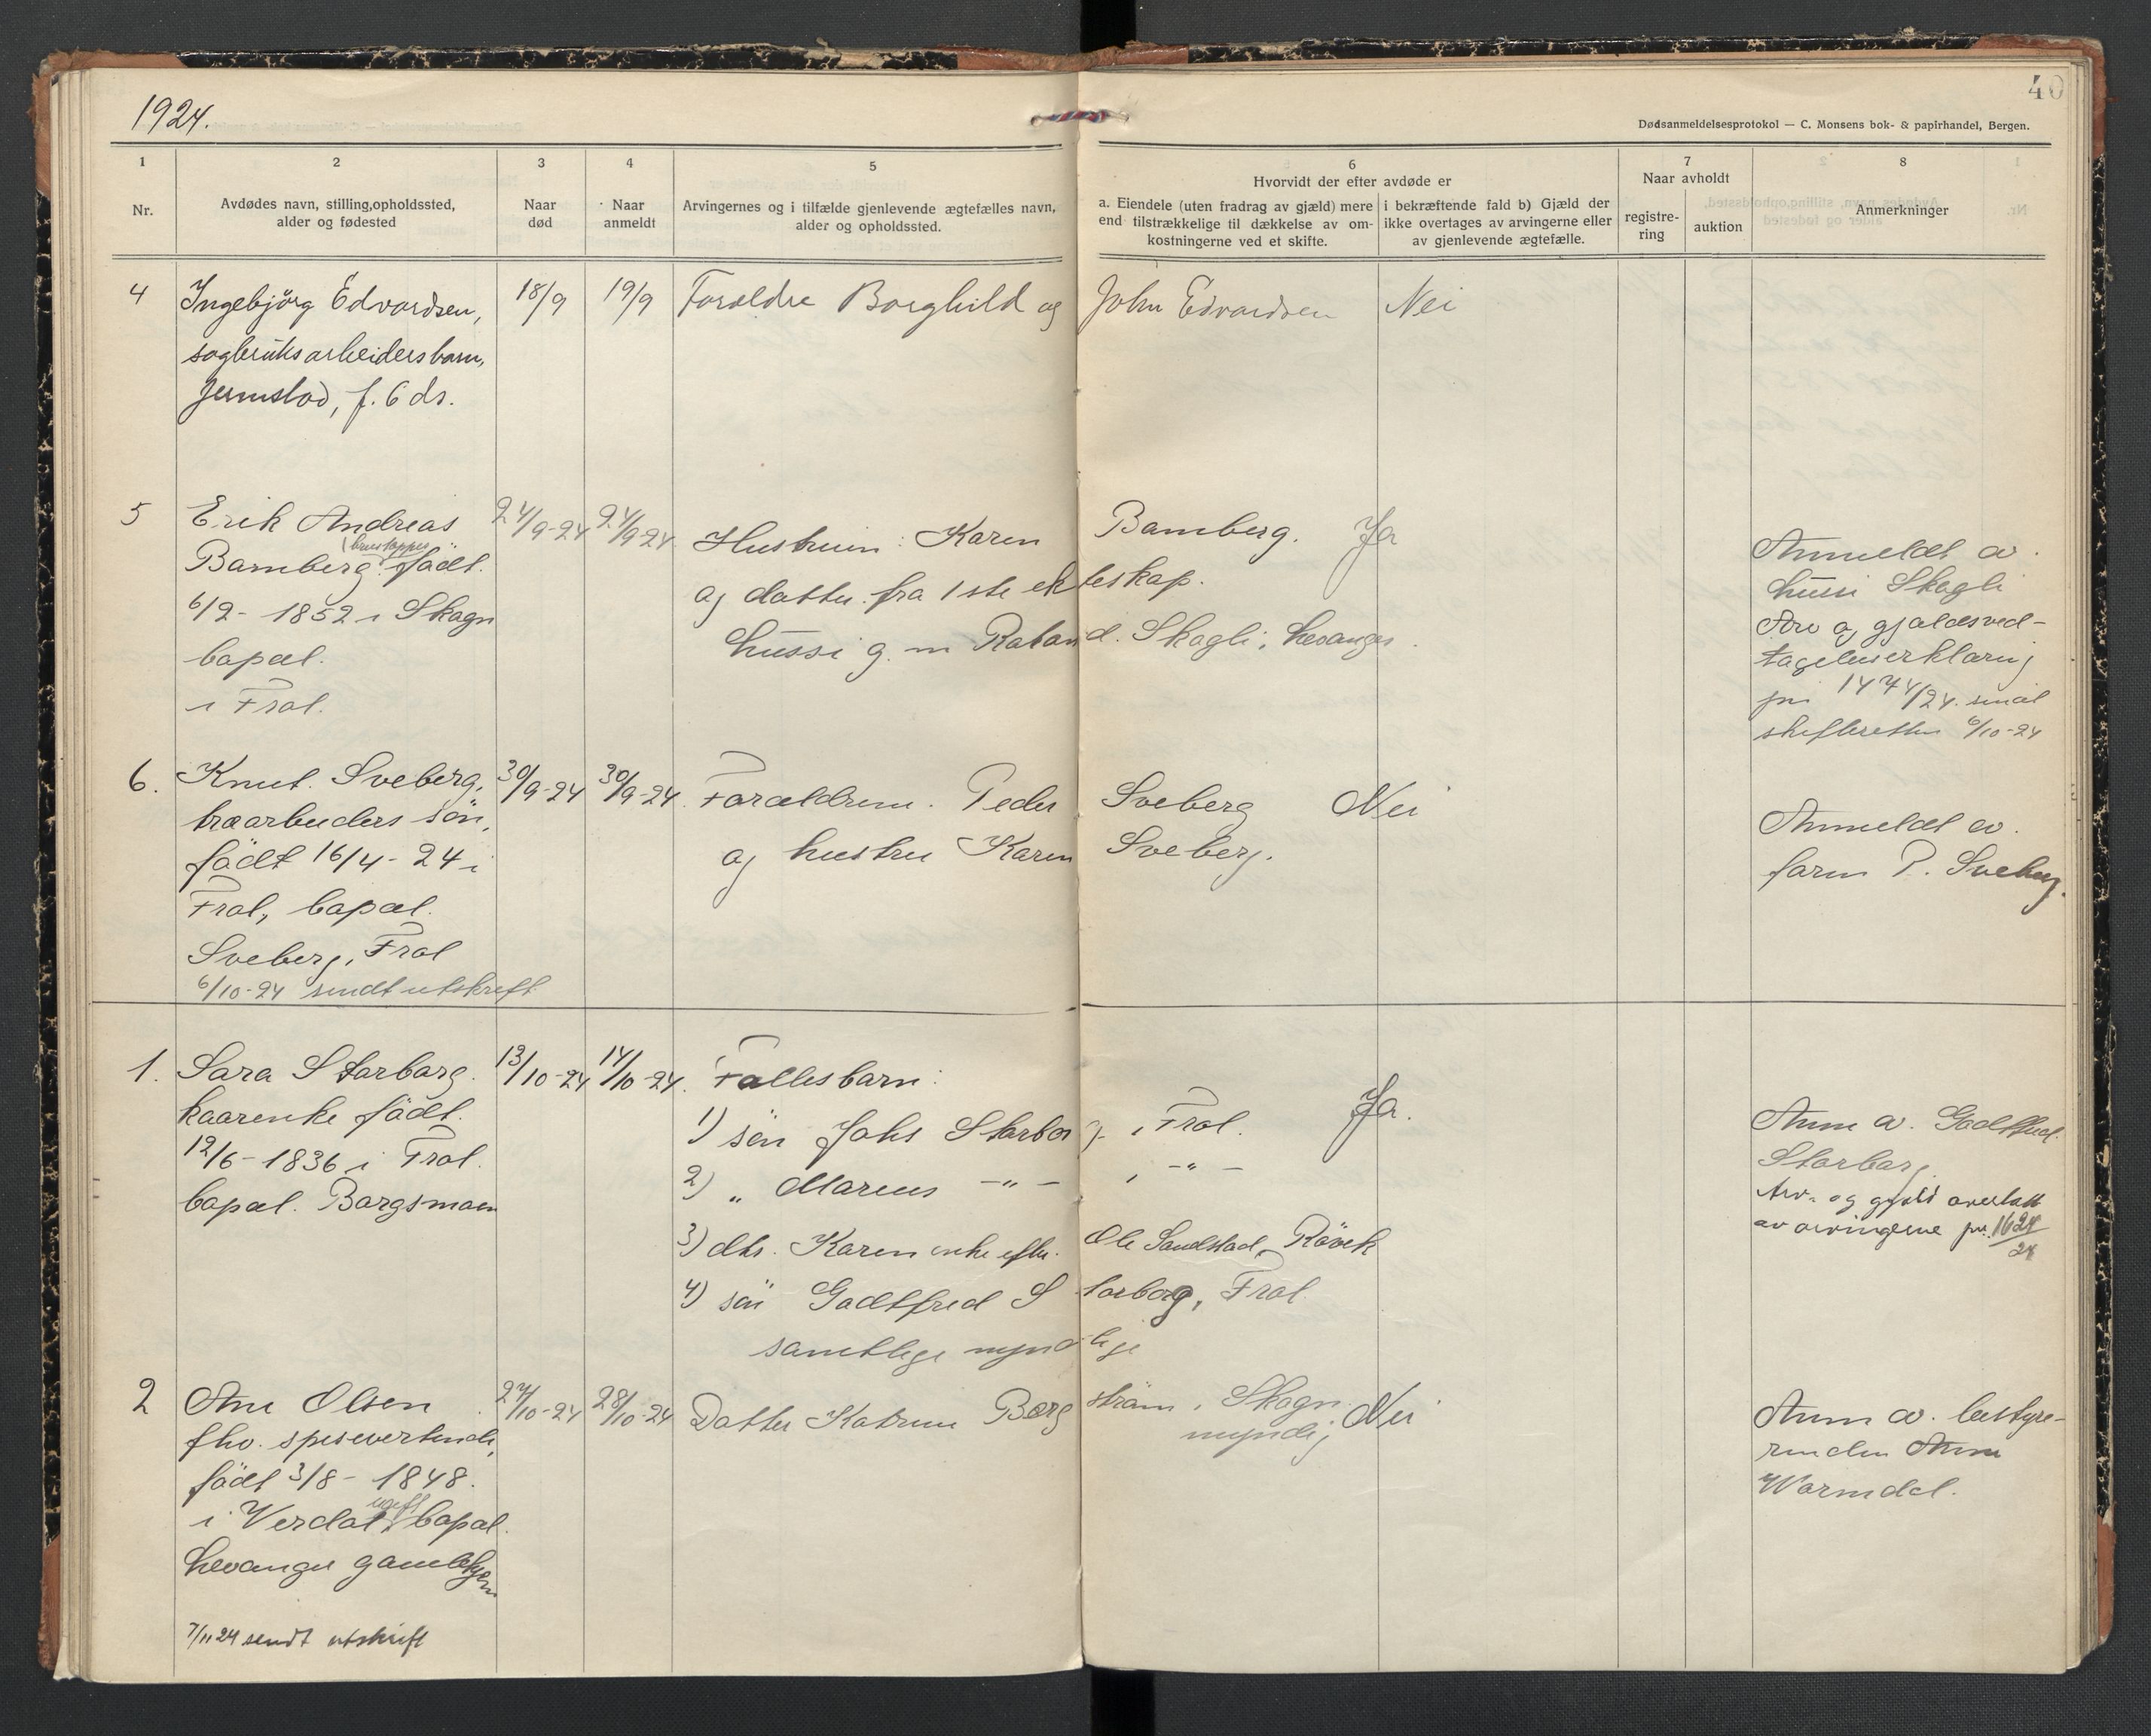 1924.
40
Dødsanmeldelsesprotokol — C. Monsens bok- & papirhandel, Bergen.
1
2
3
4
5
6
7
8
Nr.
Avdødes navn, stilling,opholdssted,
alder og fødested
Naar
død
Naar
anmeldt
Arvingernes og i tilfælde gjenlevende ægtefælles navn,
alder og opholdssted.
Hvorvidt der efter avdøde er
a. Eiendele (uten fradrag av gjæld) mere
end tilstrækkelige til dækkelse av om-
kostningerne ved et skifte.
i bekræftende fald b) Gjæld der
ikke overtages av arvingerne eller
av gjenlevende ægtefælle.
Naar avholdt
registre-
ring
auktion
Anmerkninger
4
Ingebjörg Edvardsen,
sagbruksarbeidersbarn,
Jermstad, f. 6 ds.
18/9
19/9
Foreldre Borghild og John Edvardsen
Nei
5
Erik Andreas
Bamberg födt.
6/2 - 1852 i Skogn
bopæl.
i Frol.
24/9-24
24/9-24
Hustruen: Karen Bamberg.
og datter fra 1ste ekteskap.
Lussi g. m Roland. Skogli, Levanger.
Ja
Anmeldt av.
Lussi Skogli
Arv og gjældsved-
tagelseserklæring
jni 1474/24. smäl
skifteretten 6/10-24
6.
Knut. Sveberg,
træarbeiders sön,
födt 16/4 - 24 i
Frol, bopæl.
Sveberg, Frol
6/10-24 sendt utskrift
30/9-24
30/9-24
Forældrene. Peder Sveberg
og hustru Karen Sveberg.
Nei
Anmeldt av.
faren P. Sveberg.
1.
Sara Storborg.
kaarenke födt.
12/6 - 1836 i Frol.
bopæl. Borgsmoen
13/10-24
14/10-24
Fællesbarn:
1) sön Johs Storborg, i Frol.
2) „ Marius -„- , -„-
3) dtr. Karen enke efter. Ole Sandstad, Rövik
4) sön Godtfred Storborg, Frol.
samtlige myndige
Ja.
Anm av. Godtfred.
Storborg.
Arv- og gjeld overtatt
av arvingerne jnr. 1624/24
2
Ane Olsen
fhv. spisevertinde,
födt 3/8 - 1848.
i Verdal, ugift bopæl.
Levanger gamlehjem
7/11 24 sendt utskrift
27/10-24
28/10-24
Datter Katrine Bergström, Skogn.
myndig
Nei
Anm av. bestyre-
rinden Anne
Wormdal.